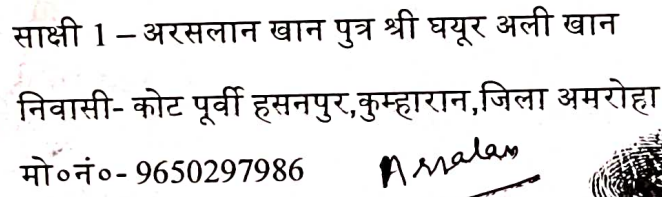 साक्षी 1 – अरसलान खान पुत्र श्री घयूर अली खान
निवासी- कोट पूर्वी हसनपुर,कुम्हारान,जिला अमरोहा
मो०नं०- 9650297986 Arsalan